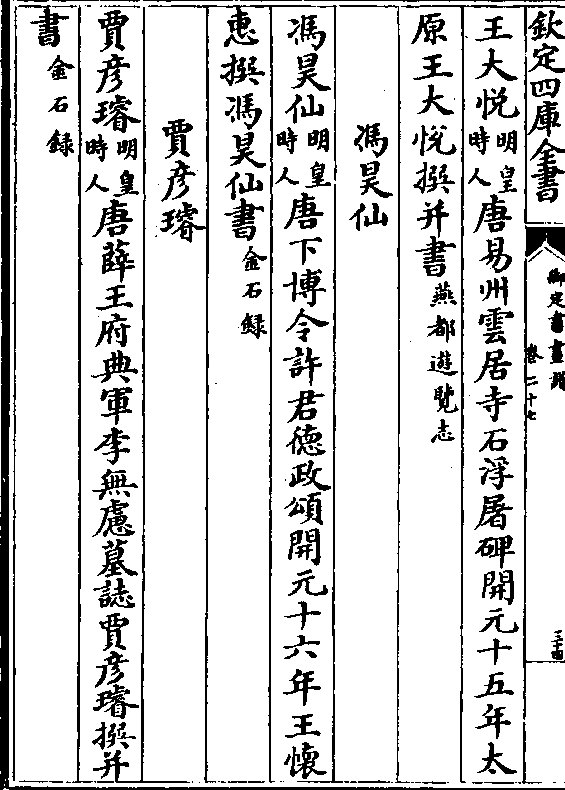 欽定四庫全書
御定書畫譜
卷二十七
三十四
王大悦明皇時人唐易州雲居寺石浮屠碑開元十五年太
原王大悦撰并書燕都遊覽志
馮昊仙
馮昊仙明皇時人唐下博令許君德政頌開元十六年王懷
惠撰馮昊仙書金石録
賈彦璿
賈彦璿明皇時人唐薛王府典軍李無慮墓誌賈彦璿撰并
書金石録